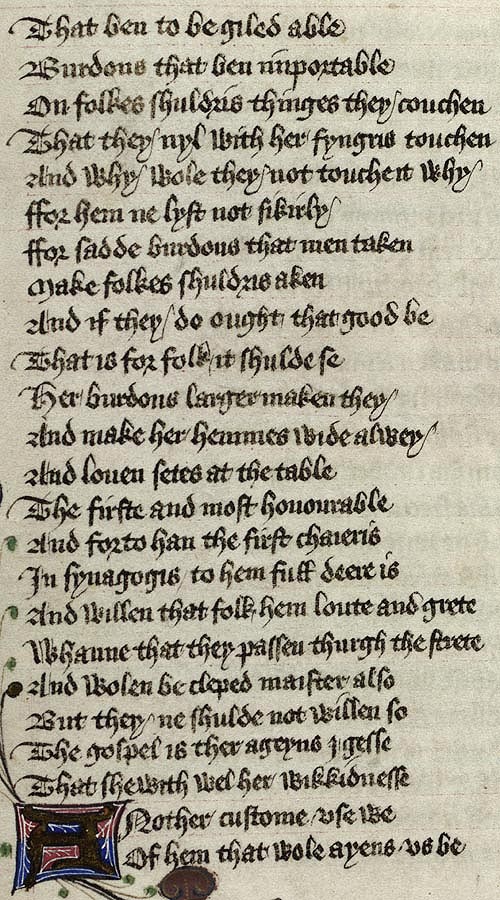 That ben to be giled able
Burdons that ben inportable
On folkes shuldris thinges they couchen
That they nyl with her fyngris touchen
And why wole they not touche it why
ffor hem ne lyst not sikirly
ffor sadde burdons that men taken
Make folkes shuldris aken
And if they do ought that good be
That is for folk it shulde se
Her burdons larger maken they
And make her hemmes wide alwey
And louen setes at the table
The firste and most honourable
And forto han the first chaieris
In synagogis to hem full deere is
And willen that folk hem loute and grete
Whanne that they passen thurgh the strete
And wolen be cleped maister also
But they ne shulde not willen so
The gospel is ther ageyns I gesse
That shewith wel her wikkidnesse
ANother custome vse we
Of hem that wole ayens vs be